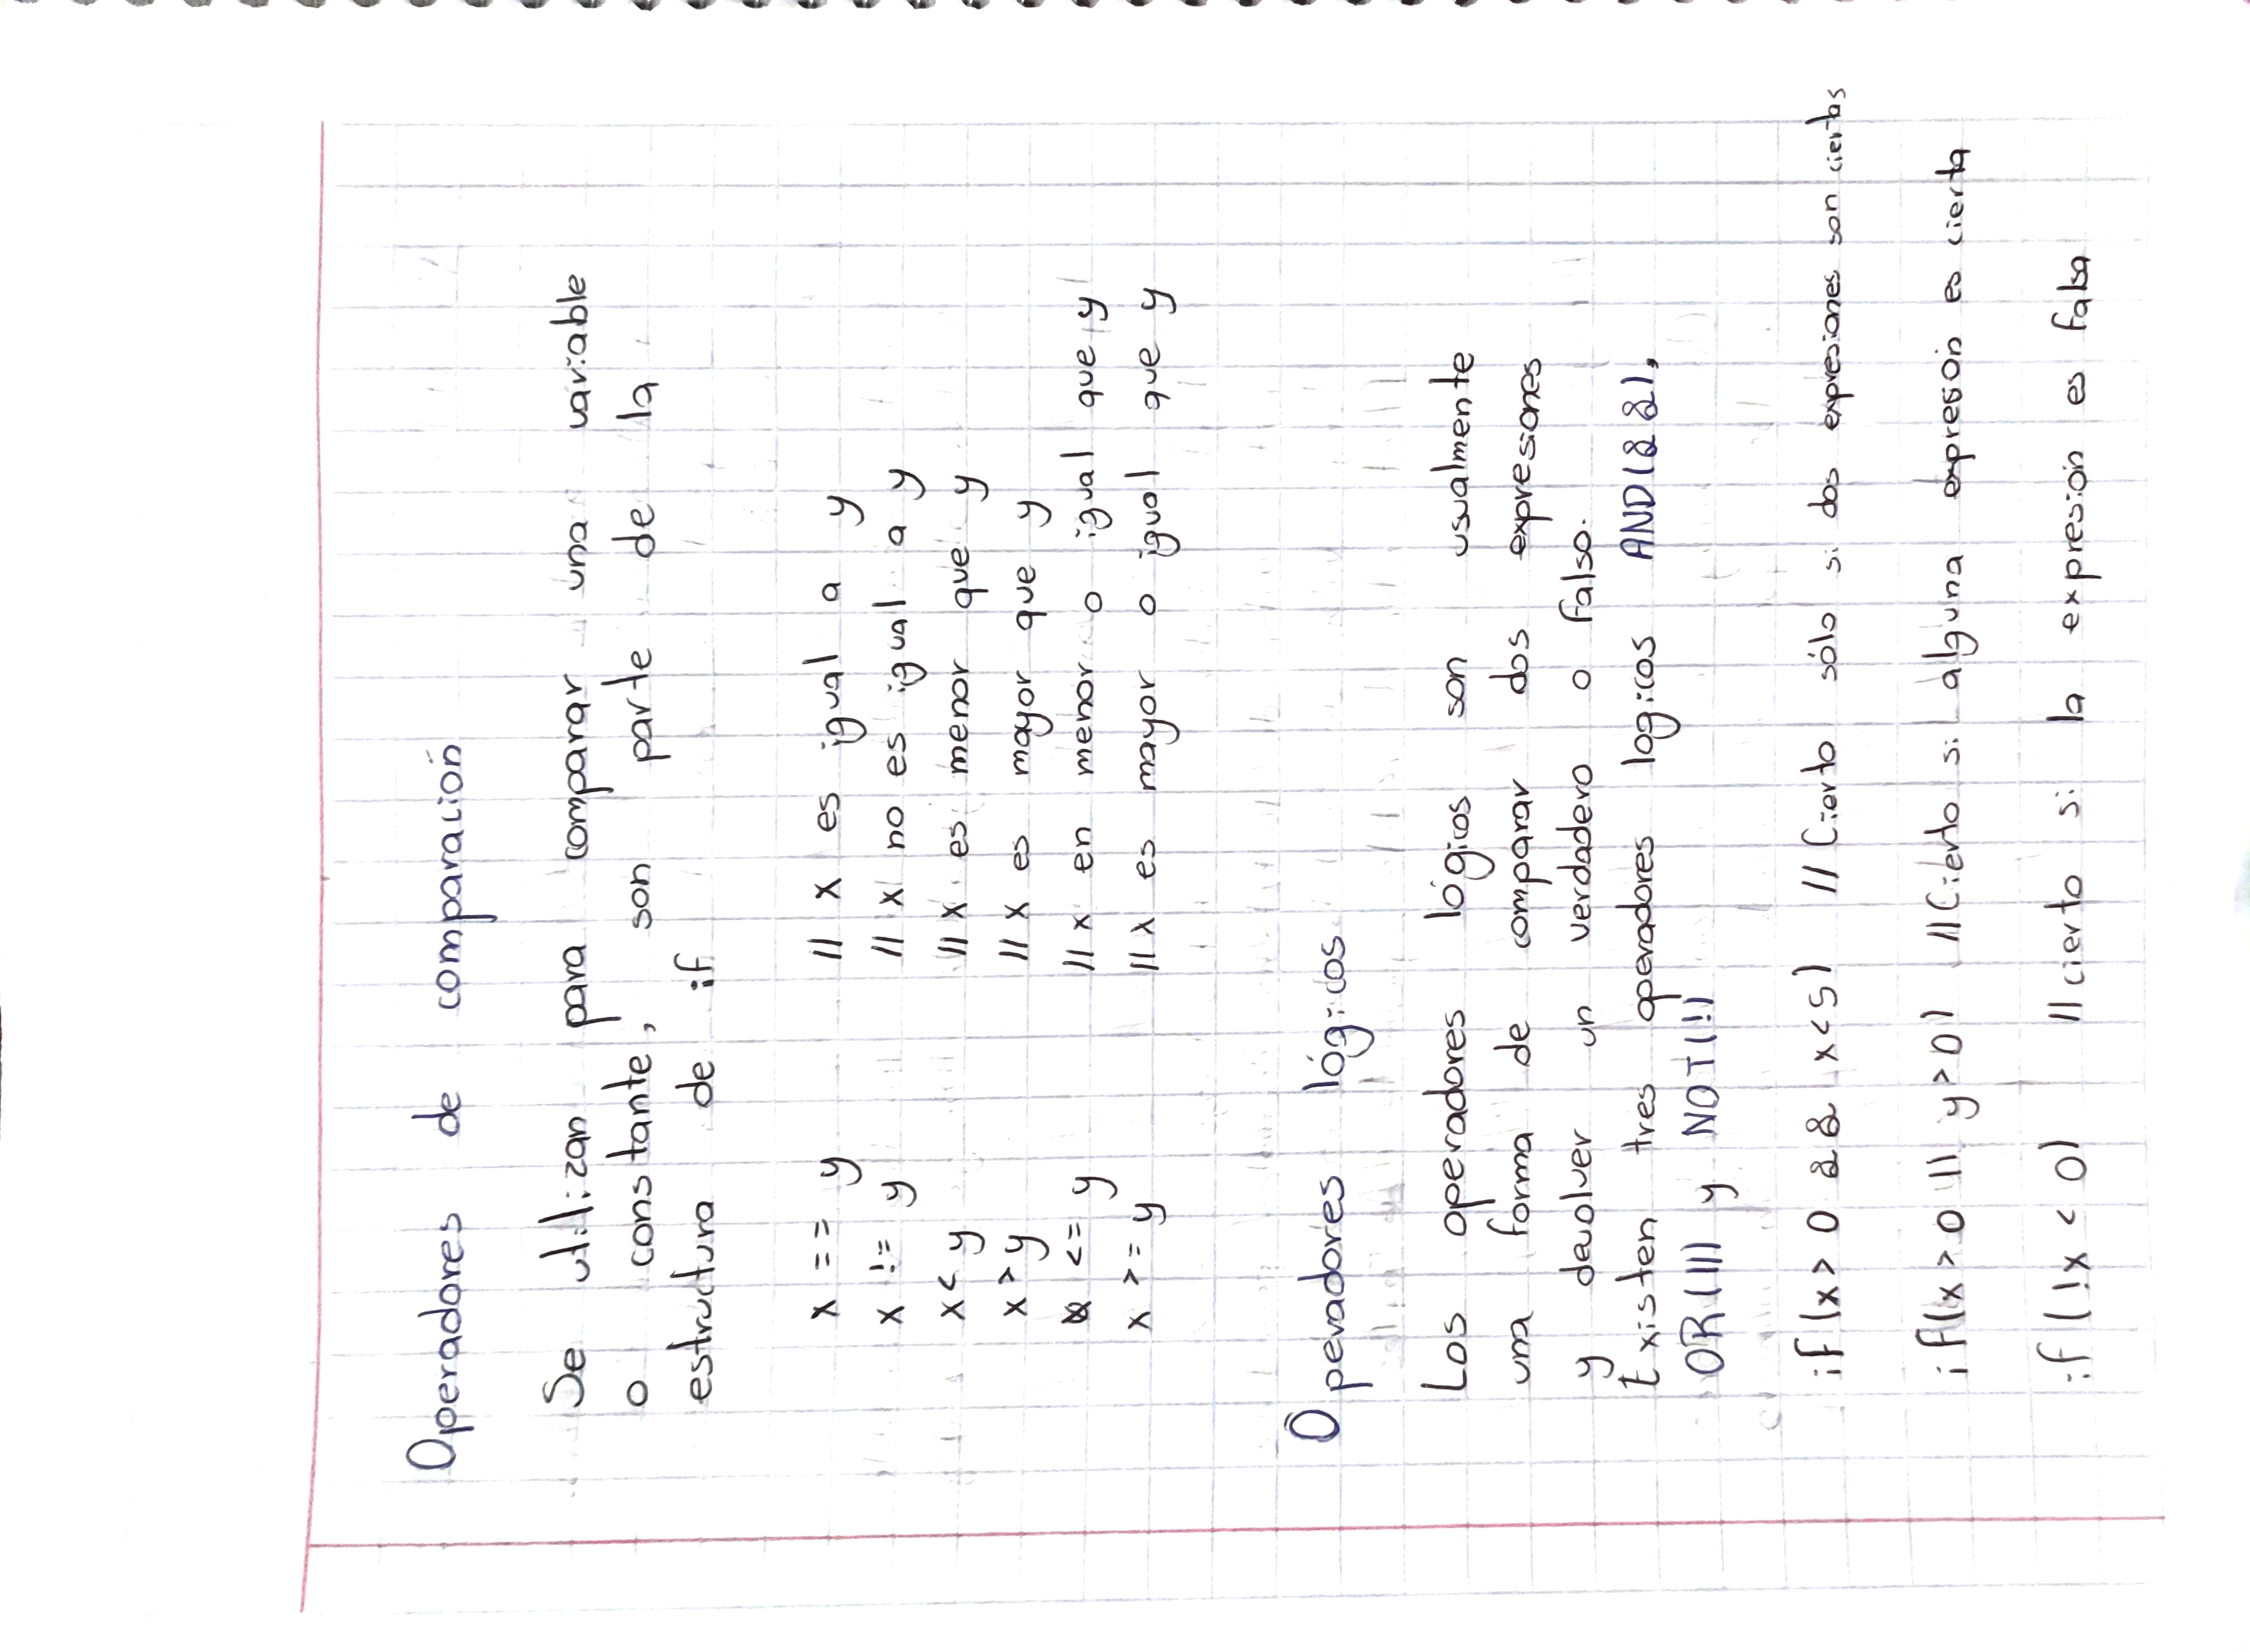 Operadores de comparación
Se utilizan para comparar una variable
o constante, son parte de la
estructura de if
x == y // x es igual a y
x != y // x no es igual a y
x < y // x es menor que y
x > y // x es mayor que y
x <= y // x en menor o igual que y
x >= y // x es mayor o igual que y
Operadores lógicos
Los operadores lógicos son usualmente
una forma de comparar dos expresiones
y devolver un verdadero o falso.
Existen tres operadores logicos AND(&&),
OR(||) y NOT(!)
if (x > 0 && x < 5) // Cierto sólo si dos expresiones son ciertas
if (x > 0 || y > 0) // Cierto si alguna expresión es cierta
if (!x < 0) // cierto si la expresión es falsa